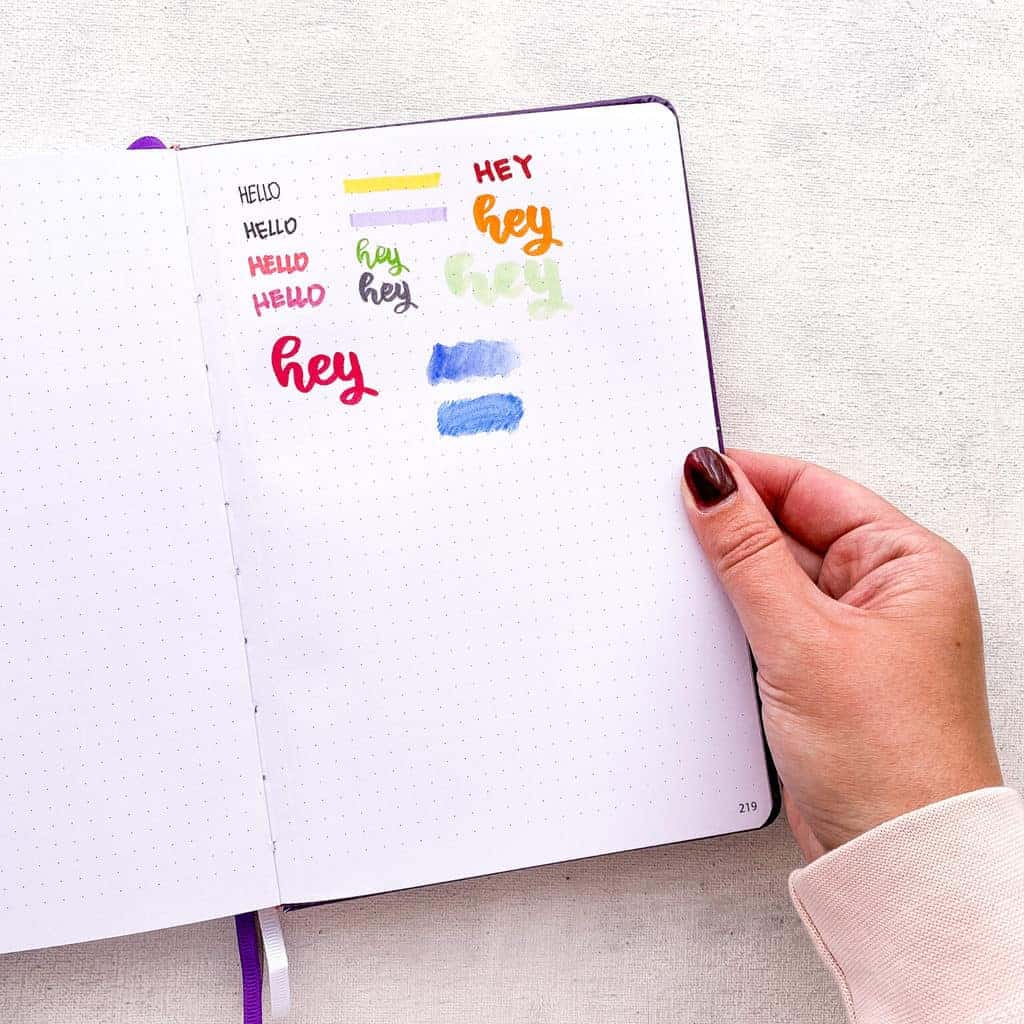 HELLO
HELLO
HELLO
HELLO
hey
hey
hey
HEY
hey
hey
219